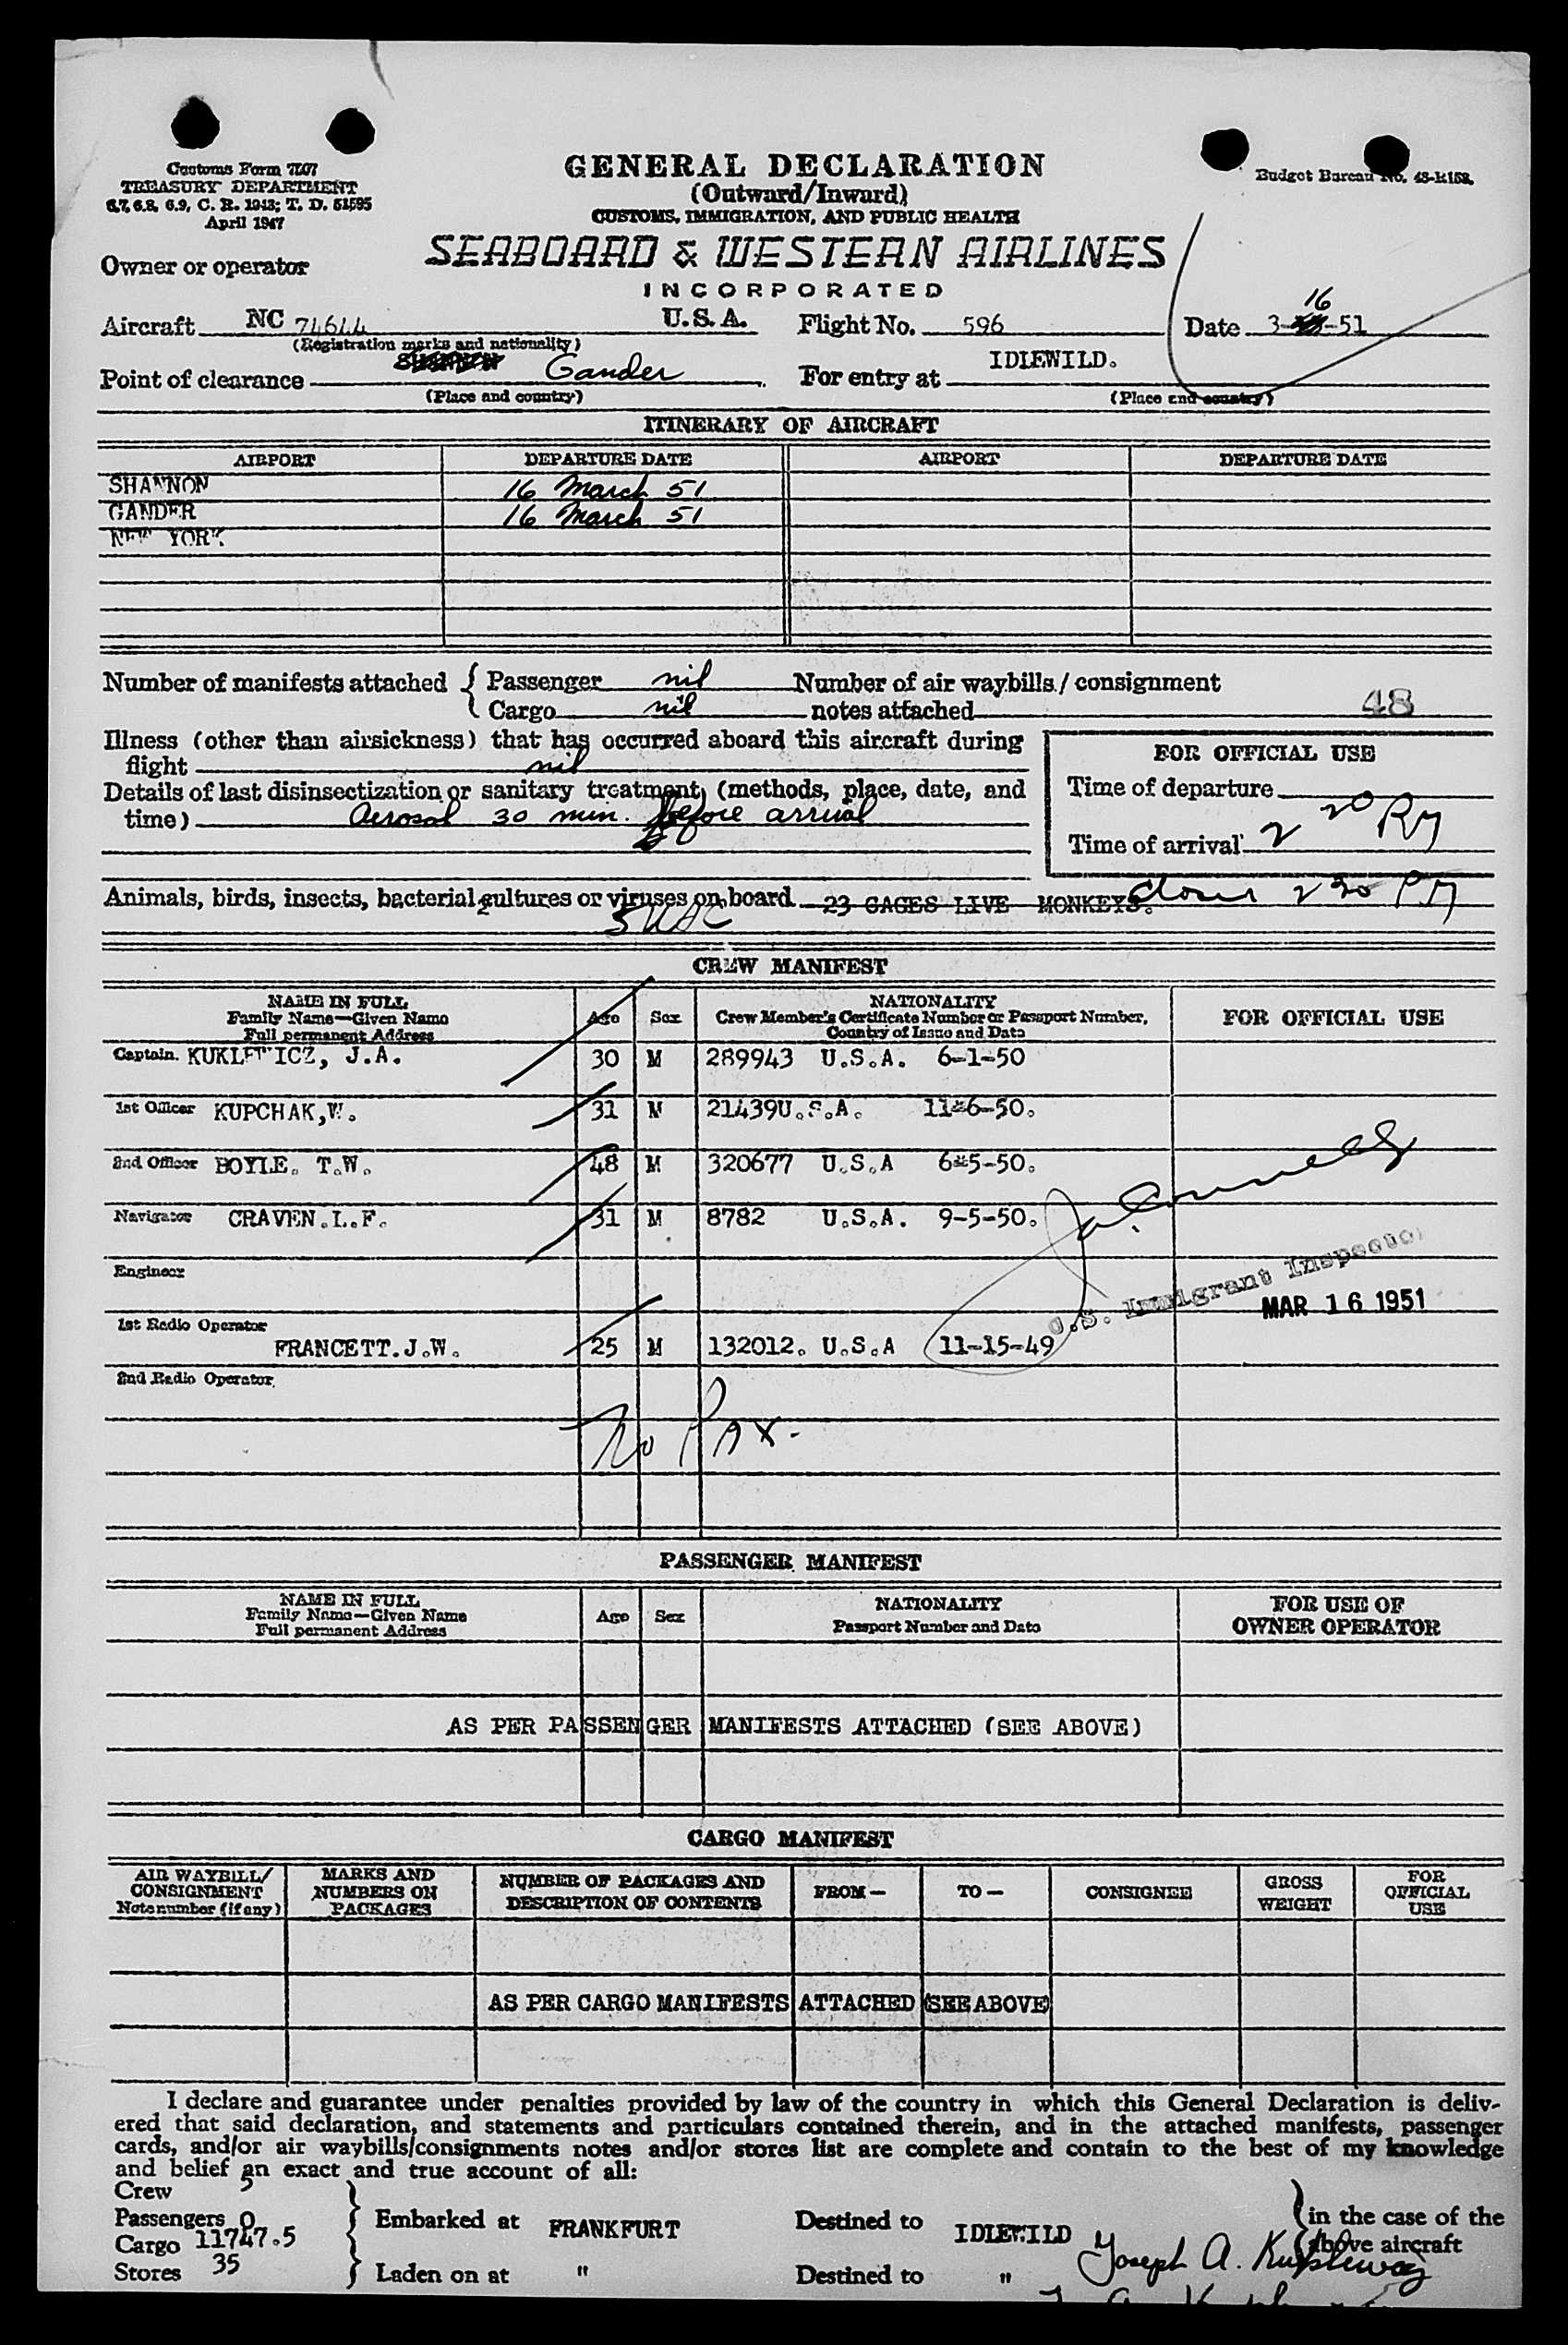 Customs Form 7507
TREASURY DEPARTMENT
6.7, 6.8, 6.9, C. R. 1943; T. D. 51595
April 1947
GENERAL DECLARATION
(Outward/Inward)
CUSTOMS, IMMIGRATION, AND PUBLIC HEALTH
Budget Bureau No. 48-R152.
Owner or operator SEABOARD & WESTERN AIRLINES
INCORPORATED
Aircraft NC 74644 U.S.A. Flight No. 596 Date 3-16-51
(Registration marks and nationality)
Point of clearance Gander For entry at IDLEWILD.
(Place and country) (Place and country)
ITINERARY OF AIRCRAFT
AIRPORT DEPARTURE DATE AIRPORT DEPARTURE DATE
SHANNON 16 March 51
GANDER 16 March 51
NEW YORK
Number of manifests attached { Passenger nil Number of air waybills / consignment
Cargo nil notes attached 48
Illness (other than airsickness) that has occurred aboard this aircraft during
flight nil
Details of last disinsectization or sanitary treatment (methods, place, date, and
time) Aerosol 30 min. before arrival
FOR OFFICIAL USE
Time of departure
Time of arrival 2 20
Animals, birds, insects, bacterial cultures or viruses on board 23 CAGES LIVE MONKEYS. 2 30 PM
CREW MANIFEST
NAME IN FULL
Family Name—Given Name
Full permanent Address
Age Sex
NATIONALITY
Crew Member's Certificate Number or Passport Number,
Country of Issue and Date
FOR OFFICIAL USE
Captain. KUKLEWICZ, J.A. 30 M 289943 U.S.A. 6-1-50
1st Officer KUPCHAK,W. 31 M 21439U.S.A. 11-6-50.
2nd Officer BOYLE. T.W. 48 M 320677 U.S.A 6-5-50.
Navigator CRAVEN.L.F. 31 M 8782 U.S.A. 9-5-50.
Engineer
U.S. Immigrant Inspector
MAR 16 1951
1st Radio Operator
FRANCETT.J.W. 25 M 132012. U.S.A 11-15-49
2nd Radio Operator
No PAX.
PASSENGER MANIFEST
NAME IN FULL
Family Name—Given Name
Full permanent Address
Age Sex
NATIONALITY
Passport Number and Date
FOR USE OF
OWNER OPERATOR
AS PER PASSENGER MANIFESTS ATTACHED (SEE ABOVE)
CARGO MANIFEST
AIR WAYBILL/
CONSIGNMENT
Note number (if any)
MARKS AND
NUMBERS ON
PACKAGES
NUMBER OF PACKAGES AND
DESCRIPTION OF CONTENTS
FROM— TO— CONSIGNEE
GROSS
WEIGHT
FOR
OFFICIAL
USE
AS PER CARGO MANIFESTS ATTACHED (SEE ABOVE)
I declare and guarantee under penalties provided by law of the country in which this General Declaration is deliv-
ered that said declaration, and statements and particulars contained therein, and in the attached manifests, passenger
cards, and/or air waybills/consignments notes and/or stores list are complete and contain to the best of my knowledge
and belief an exact and true account of all:
Crew 5
Passengers 0 Embarked at FRANKFURT Destined to IDLEWILD in the case of the
Cargo 11747.5 above aircraft
Stores 35 Laden on at " Destined to "
Joseph A.